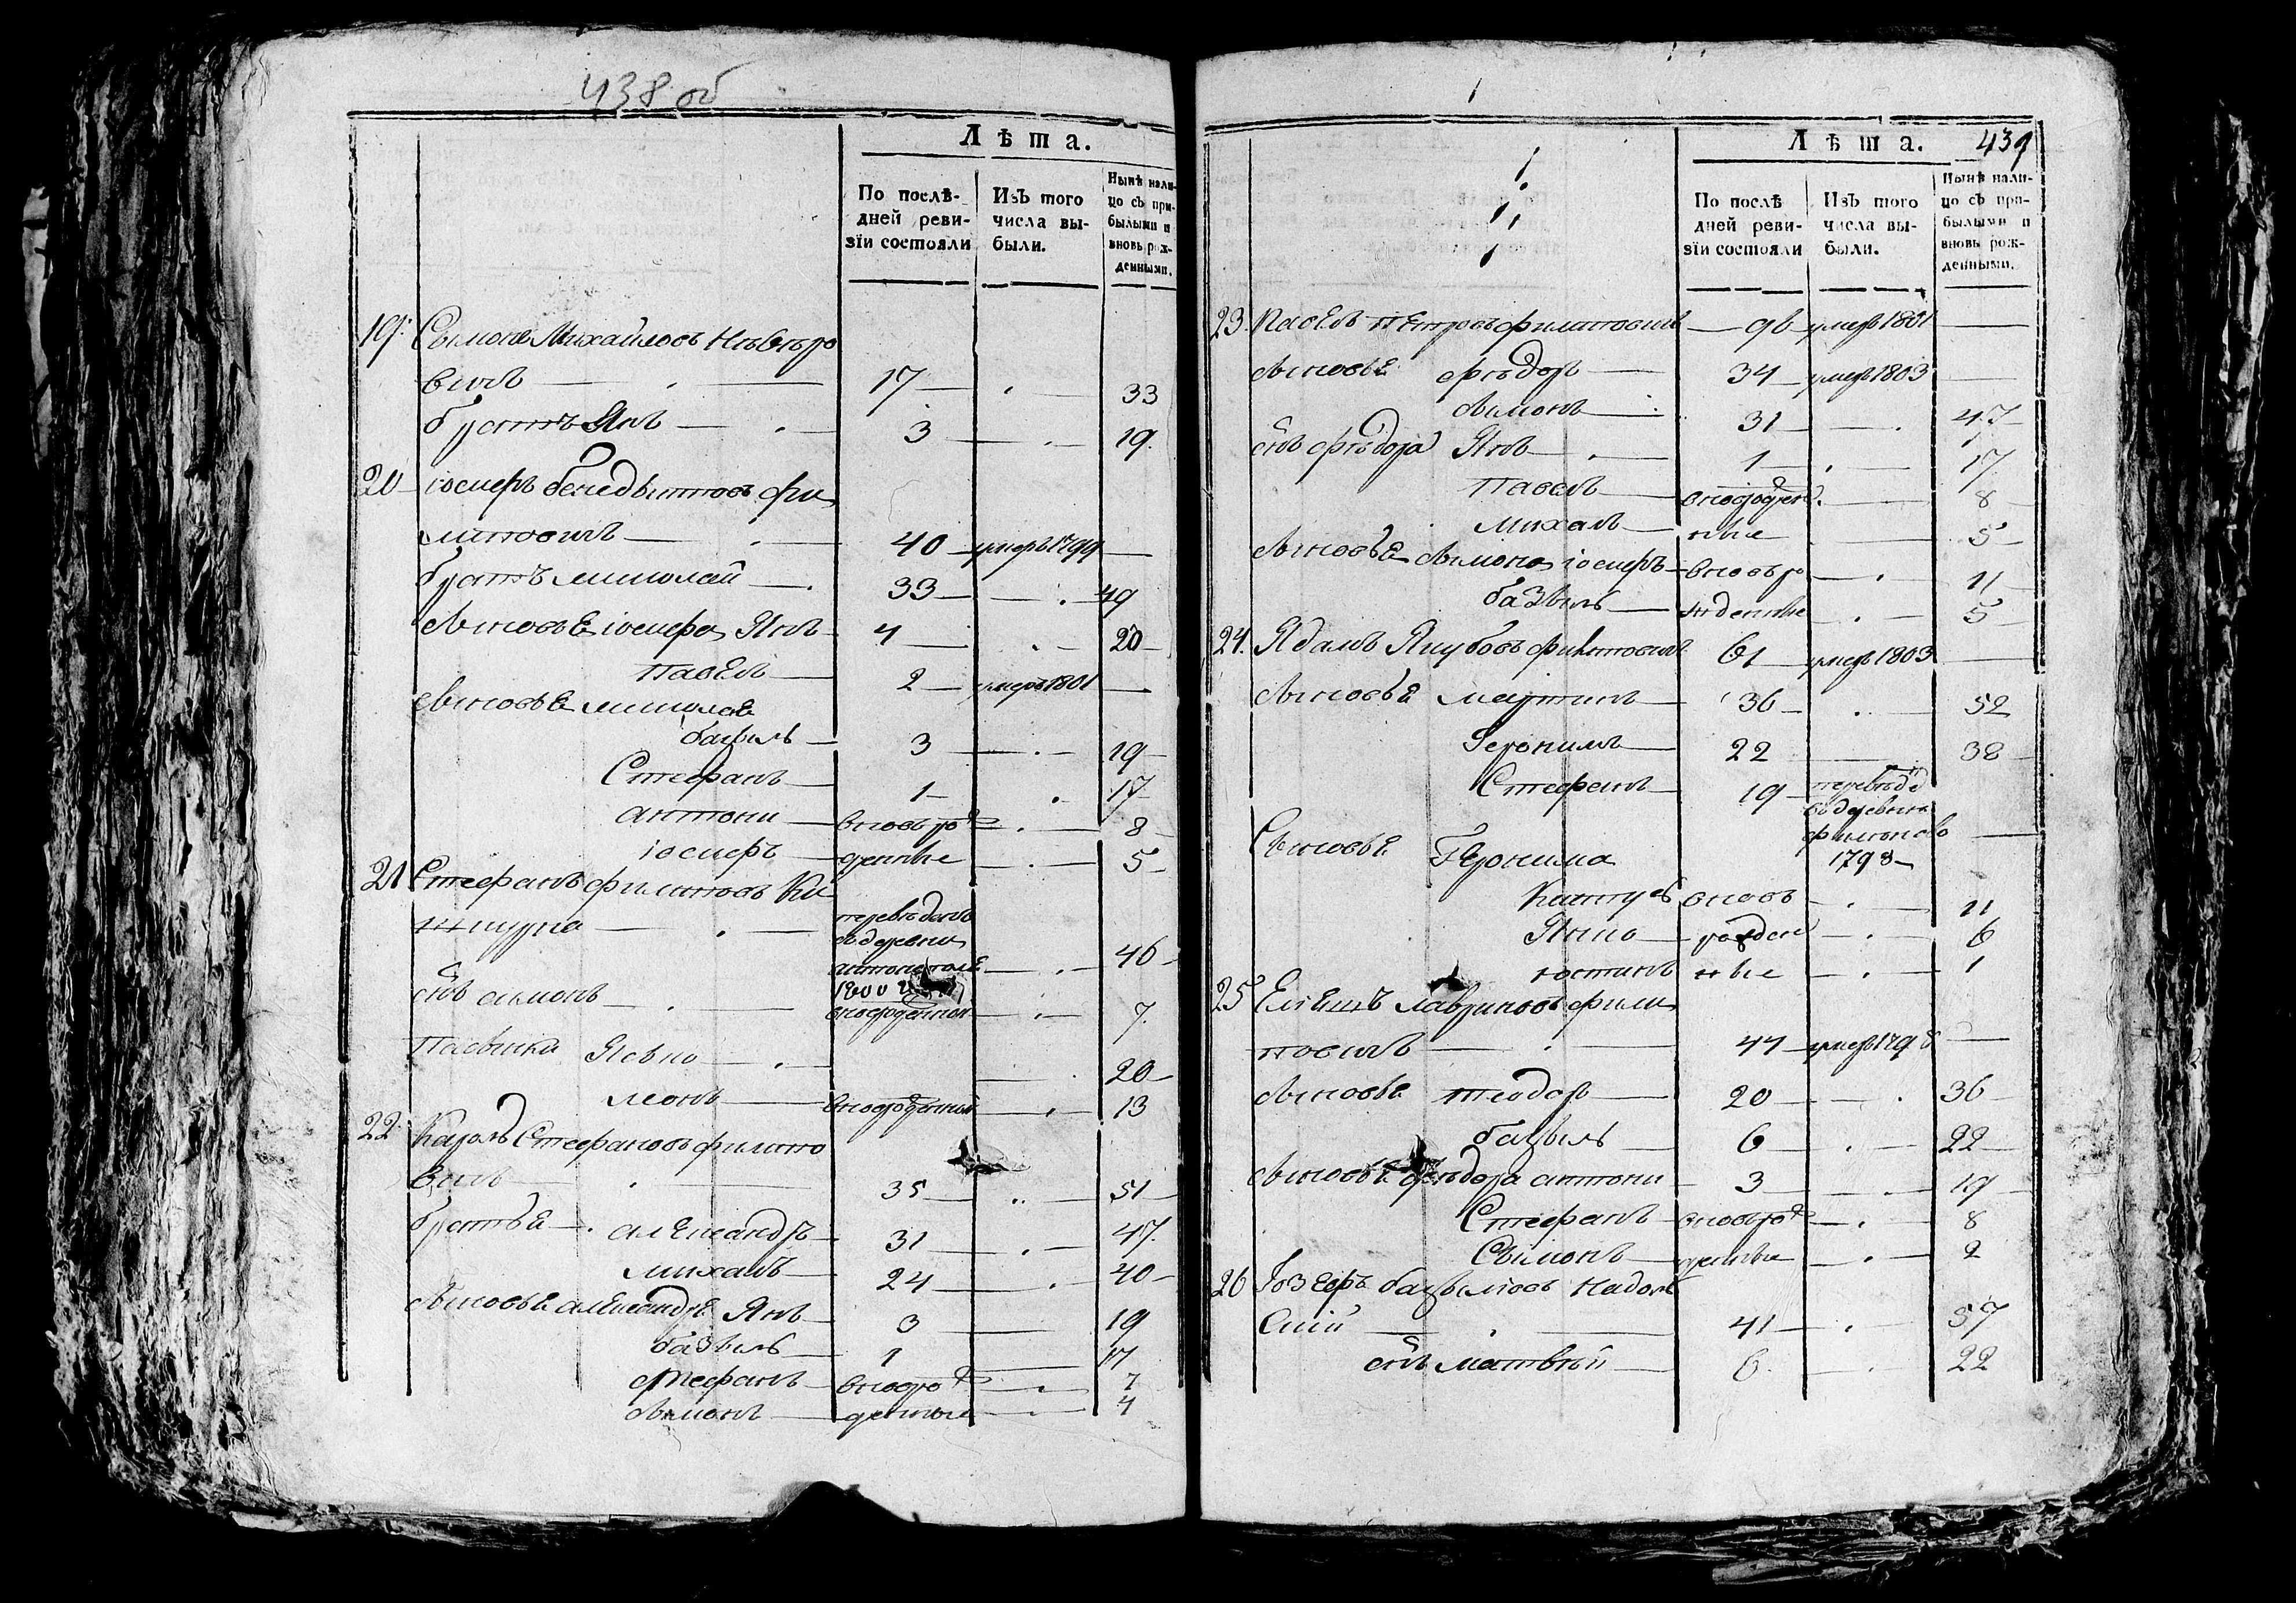 438 об
Лѣта.
По послѣ-
дней реви-
зіи состояли
Изъ того
числа вы-
были.
Нынѣ нали-
цо съ при-
былыми и
вновь рож-
денными.
19. Сымонъ Михайловъ
вичъ — 17 — 33
братъ Янъ — 3 — 19.
20 іосифъ бенедыктовъ фи
липовичъ — 40 — умеръ 1799 —
братъ миколай — 33 — 49
Сыновьѣ іосифа Янъ 4 — 20
павелъ — 2 — умеръ 1801 —
Сыновьѣ миколая
базыль — 3 — 19
Стефанъ — 1 — 17
антони — вновь ро — 8
іосифъ — жденные — 5
21 Стефанъ филиповъ
переведенъ
съ деревни
46
1800
сынъ сымонъ — вновьрожденной — 7.
пасынки — 20
леонъ — вновьрожденный — 13
22 Кароль Стефановъ филипо
вичъ — 35 — 51
братьѣ — александръ 31 — 47.
михалъ — 24 — 40
Сыновьѣ александра Янъ 3 — 19
базыль — 1 — 17
стефанъ — вновь ро — 7
сымонъ — жденные — 4
Лѣта. 439
По послѣ
дней реви-
зіи состояли
Изъ того
числа вы-
были.
Нынѣ нали-
цо съ при-
былыми и
вновь рож-
денными.
23. Павелъ петровъ филиповичъ — 96 — умеръ 1801 —
Сыновьѣ фѣдоръ — 34 — умеръ 1803 —
сымонъ — 31 — 47
сынъ фѣдора Янъ — 1 — 17
павелъ — вноврожден — 8
михалъ — ные — 5
Сыновьѣ сымона іосифъ — вновь ро — 11
базыль — жденные — 5
24. Адамъ Якубовъ филиповичъ 61 — умеръ 1803 —
Сыновьѣ мартинъ — 36 — 52
Геронимъ — 22 — 38
Стефанъ — 19 — переведен
въ деревню
филипово —
1798
Сыновьѣ Геронима
вновь — 11
рожден — 6
юстинъ ные — 1
25 лавриновъ фили
повичъ — 44 — умеръ 1798 —
Сыновьѣ теодоръ — 20 — 36
базыль — 6 — 22
Сыновьѣ фѣдора антони — 3 — 19
Стефанъ — вновь ро — 8
Сымонъ — жденные — 2
26 Іозефъ базылювъ
Скій — 41 — 57
сынъ матвѣй — 6 — 22